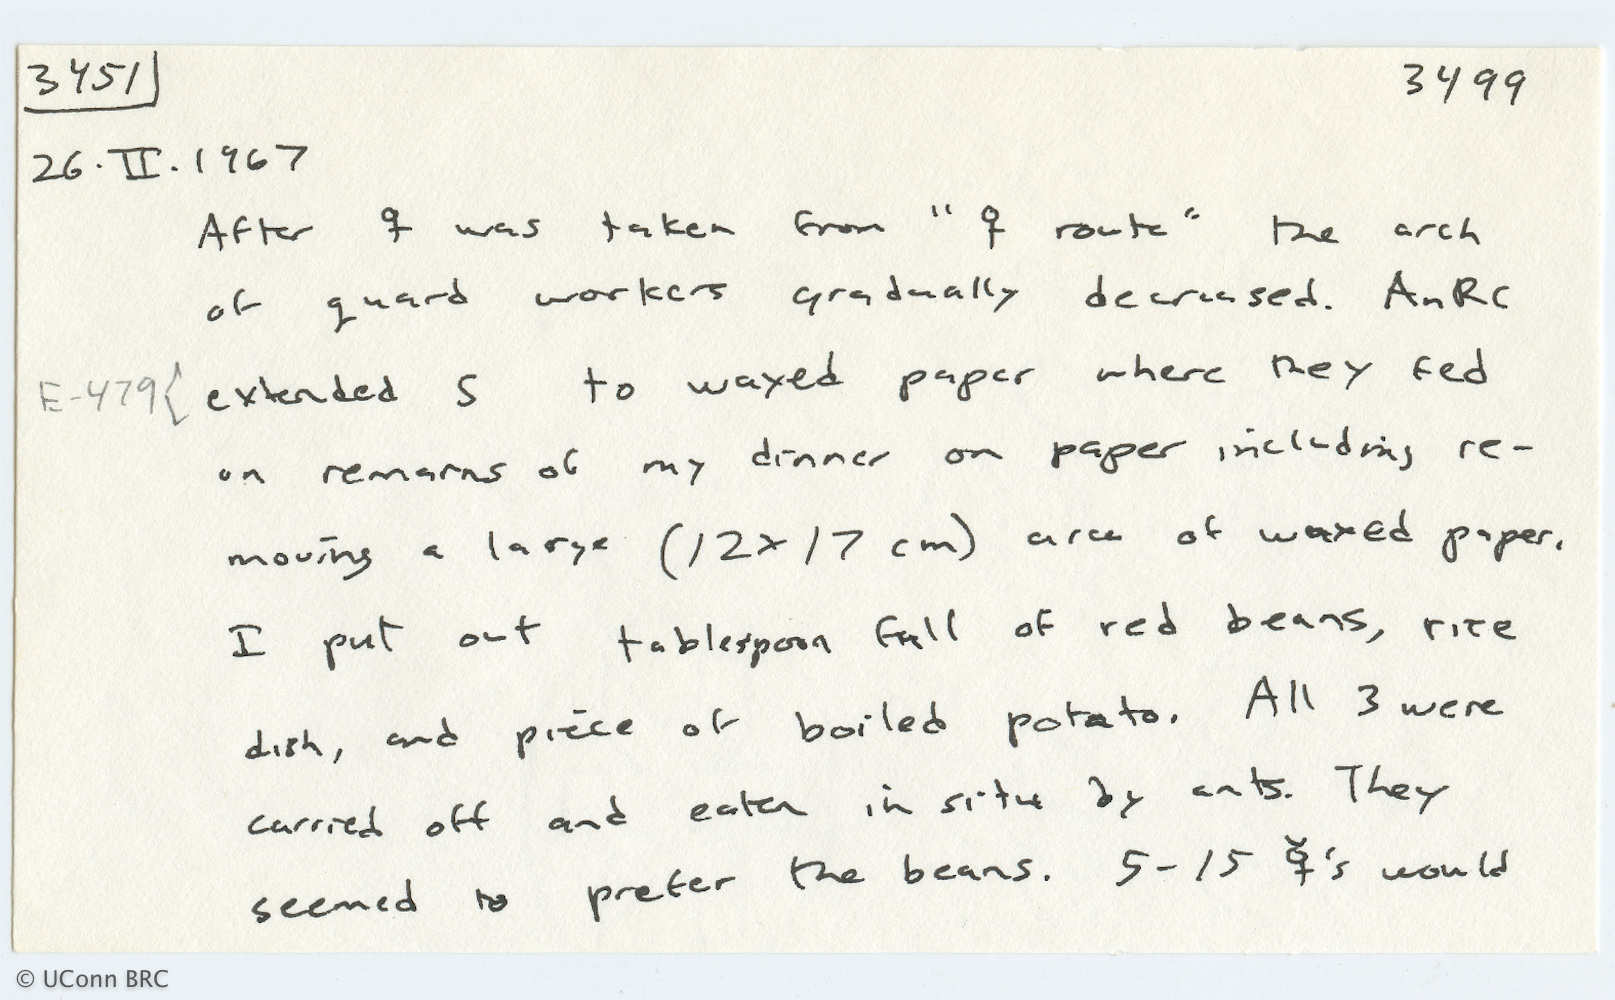 3451 3499
26.II.1967
After ♀ was taken from "♀ route" the arch
of guard workers gradually decreased. AnRC
E-479{ extended S to waxed paper where they fed
on remains of my dinner on paper including re-
moving a large (12x17 cm) area of waxed paper.
I put out tablespoon full of red beans, rice
dish, and piece of boiled potato. All 3 were
carried off and eaten in situ by ants. They
seemed to prefer the beans. 5-15 ☿'s would
© UConn BRC